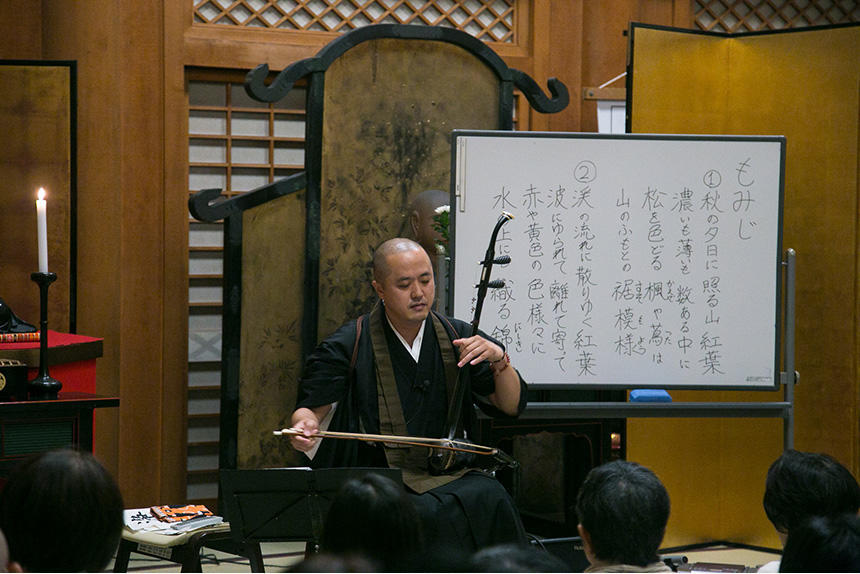 もみじ
①秋の夕日に照る山紅葉
濃いも薄も数ある中に
松を色どる楓や蔦は
かえで つた
山のふもとの裾模様
すそ も よう
②渓の流れに散りゆく紅葉
波にゆられて離れて寄って
赤や黄色の色様々に
水 上にも織る錦
にしき